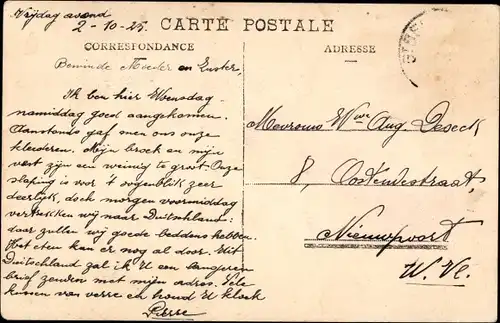 Vrijdag avond
2-10-25.
CARTE POSTALE
CORRESPONDANCE
ADRESSE
Beminde Moeder en Zuster,
Ik ben hier Woensdag
namiddag goed aangekomen.
Aanstonds gaf men ons onze
kleederen. Mijn broek en mijn
vest zijn een weinig te groot. Onze
slaping is voor 't oogenblik zeer
deerlijk, doch morgen voormiddag
vertrekken wij naar Duitschland:
daar zullen wij goede beddens hebben.
Het eten kan er nog al door. Uit
Duitschland zal ik U een langeren
brief zenden met mijn adres. Vele
kussen van verre en houd U kloek
Pierre
Mevrouw Wwe Aug. Deseck
8, Oostendestraat,
Nieuwpoort
W. Vl.